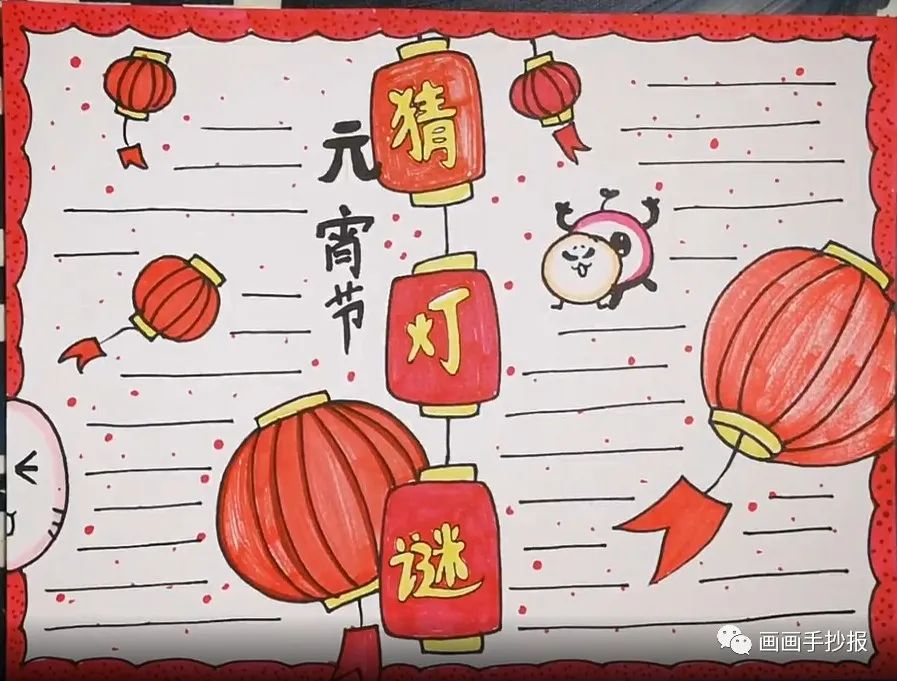 元宵节
猜灯谜
画画手抄报